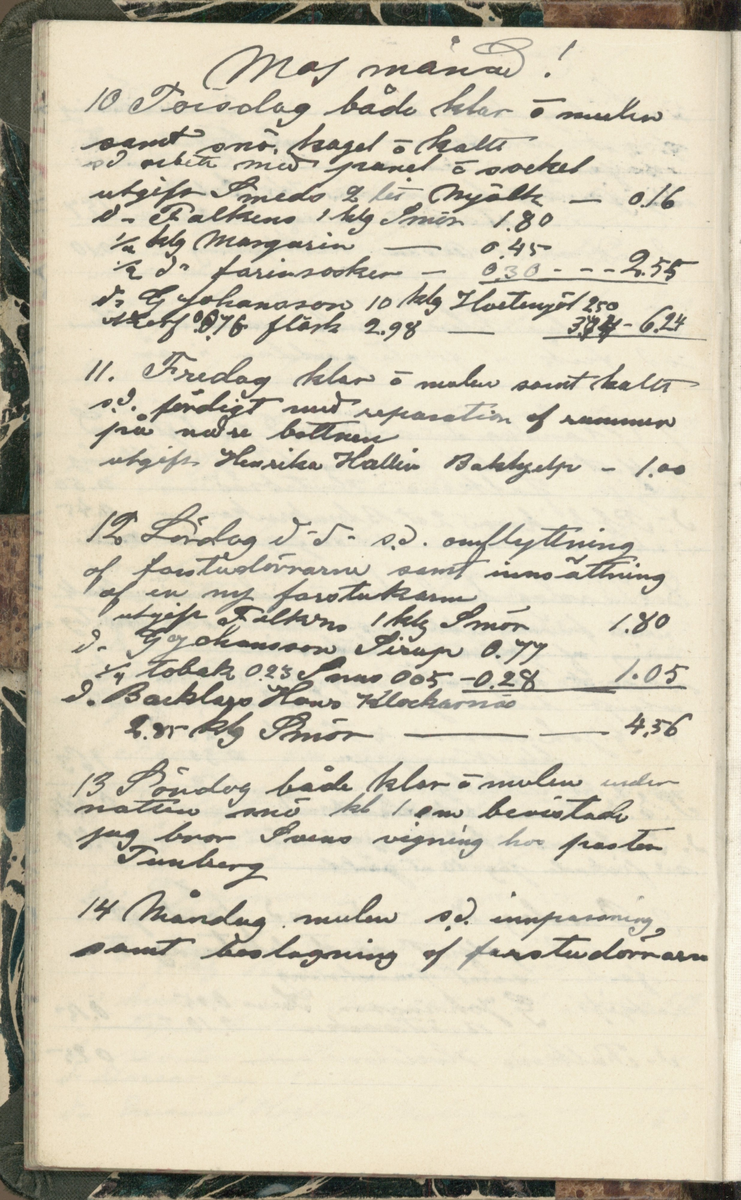 Maj månad !
10 Torsdag både klar o mulen
samt snö, hagel o kallt
s.d. arbete med panel o sockel
utgift Smeds 2 lit Mjölk — 0.16
d- Falkens 1 klg Smör 1.80
klg Margarin — 0.45
1/2 d- farinsocker — 0.30 - - - 2.55
d- G Johansson 10 klg Hvetemjöl 2.50
fläsk 2.98 — 6.24
11. Fredag klar o mulen samt kallt
s.d. färdigt med reparation af rummen
på nedre bottnen
utgift Henrika Hallin Bakhjelp — 1.00
12 Lördag d-d- s.d. omflyttning
af farstudörrarne samt innsättning
af en ny farstukarm
utgift Falkens 1 klg Smör 1.80
d- G Johansson Sirap 0.77
1/4 tobak 0.23 Snus 0.05 - 0.28 1.05
d. Backlars Hans Klockarnäs
2.85 klg Smör — — 4.56
13 Söndag både klar o mulen under
natten snö kl 1 em bevistade
jag bror Svens vigning hos pastor
Tunberg
14 Måndag mulen s.d. innpassning
samt beslagning af farstudörrarn